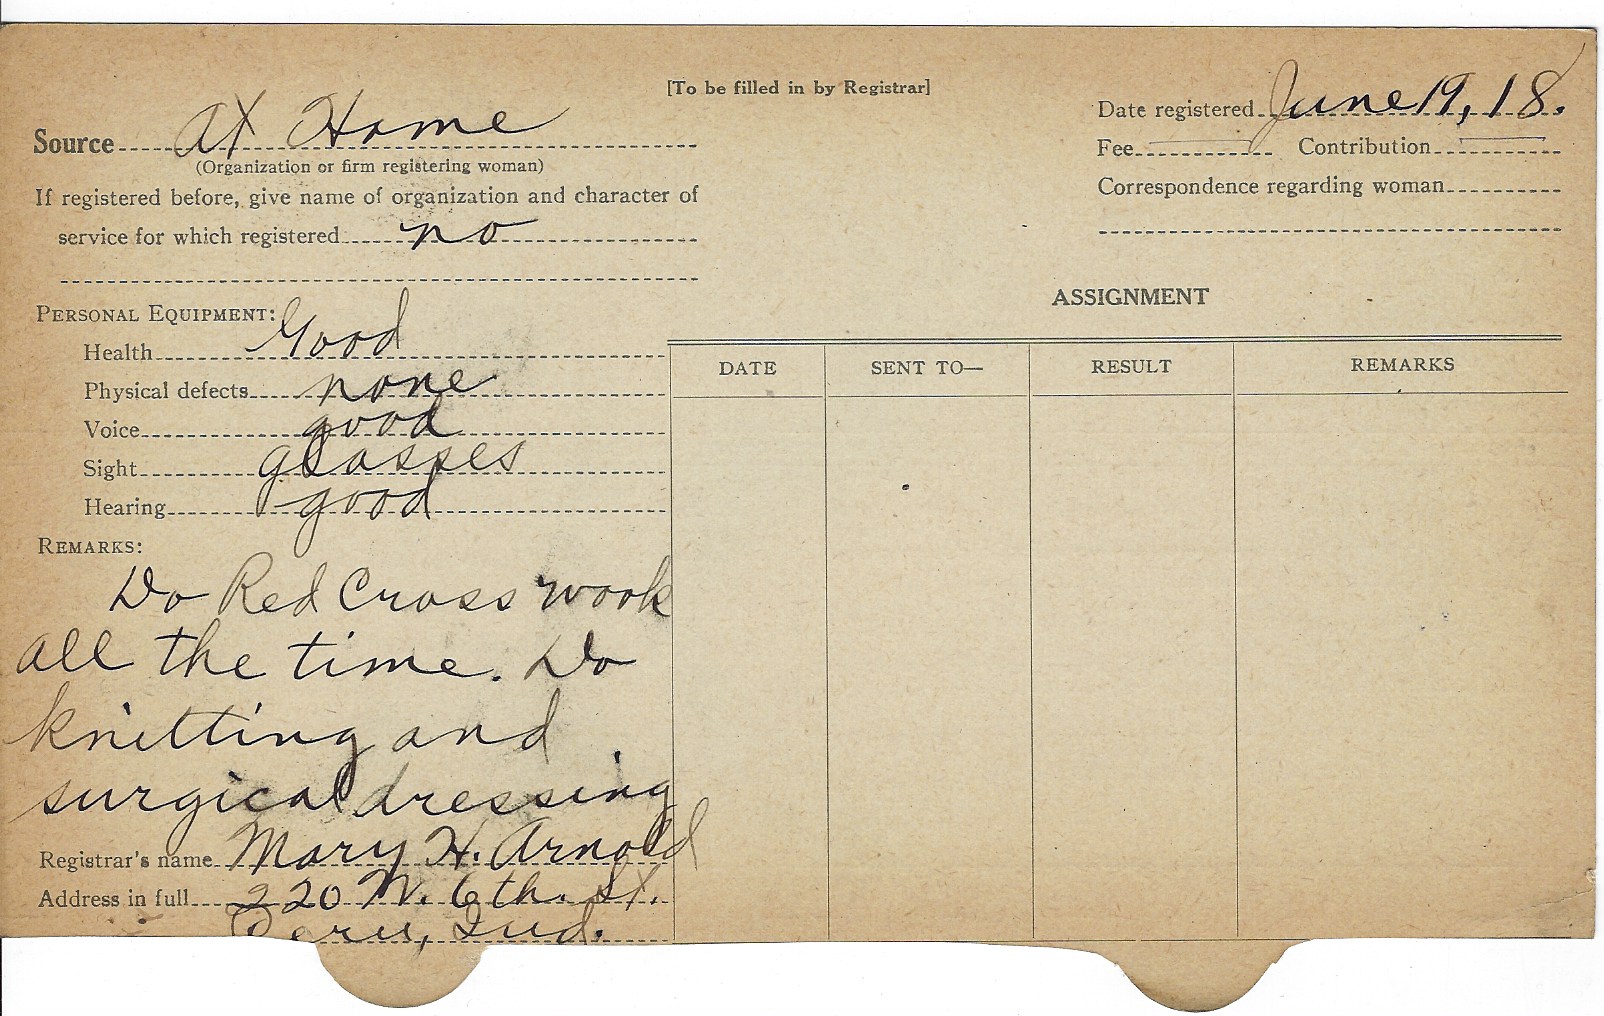 [To be filled in by Registrar]
Source At Home
(Organization or firm registering woman)
If registered before, give name of organization and character of
service for which registered no
PERSONAL EQUIPMENT:
Health Good
Physical defects none
Voice good
Sight glasses
Hearing good
REMARKS:
Do Red Cross work
all the time. Do
knitting and
surgical dressing
Registrar's name Mary H. Arnold
Address in full 220 W. 6th. St.
Peru, Ind.
Date registered June 19, 18.
Fee Contribution
Correspondence regarding woman
ASSIGNMENT
DATE SENT TO— RESULT REMARKS